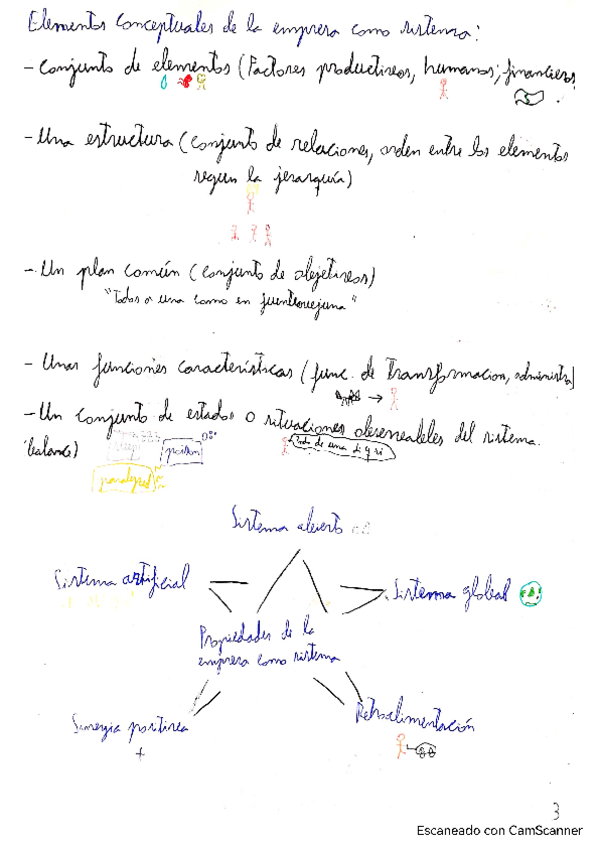 Elementos Conceptuales de la empresa como sistema:
- Conjunto de elementos (Factores productivos, humanos, financieros
- Una estructura (conjunto de relaciones, orden entre los elementos
según la jerarquía)
- Un plan común (conjunto de objetivos)
"Todos a una como en fuenteovejuna"
- Unas funciones características (func. de transformacion, administra
- Un conjunto de estados o situaciones observables del sistema.
(balance)
sleep
poison
paralyzed
Sistema abierto
Sistema artificial
Sistema global
Propiedades de la
empresa como sistema
Sinergia positiva
+
Retroalimentación
3
Escaneado con CamScanner